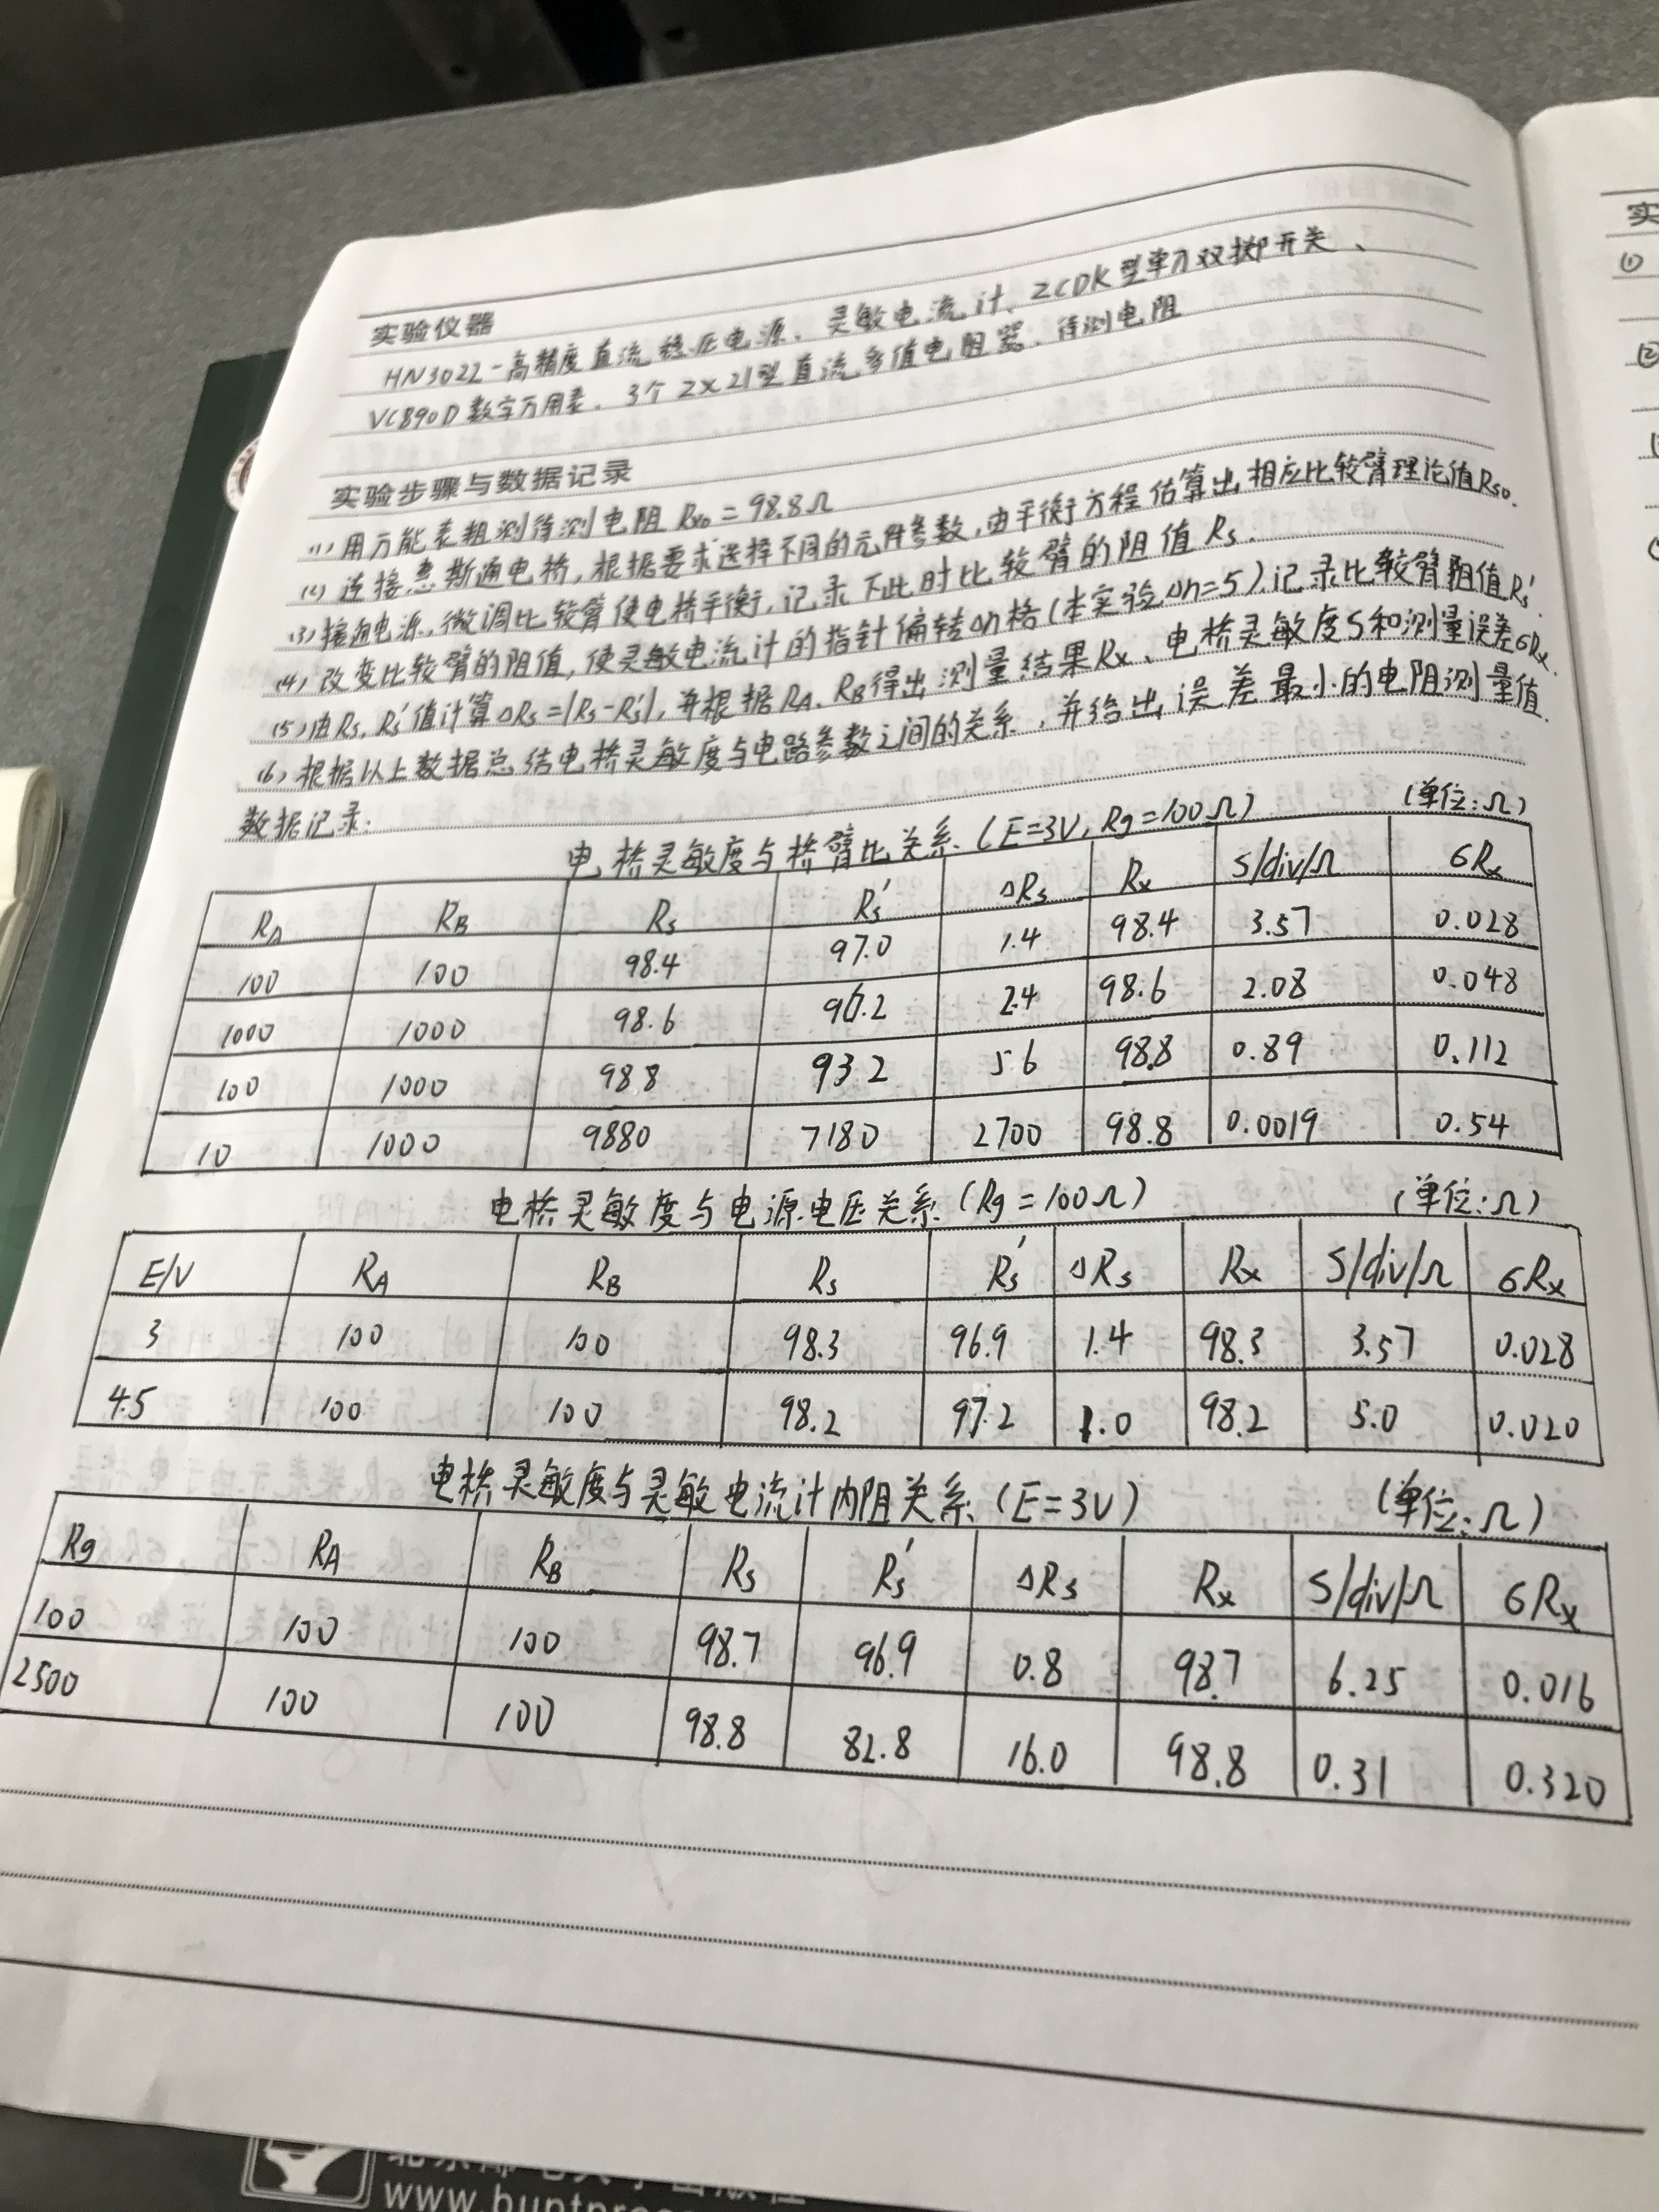 实验仪器
HN3022-高精度直流稳压电源、灵敏电流计、ZCDK型单刀双掷开关、
VC890D数字万用表、3个ZX21型直流多值电阻器、待测电阻
实验步骤与数据记录
(1) 用万能表粗测待测电阻 Rx₀ = 98.8Ω
(2) 连接惠斯通电桥，根据要求选择不同的元件参数，由平衡方程估算出相应比较臂理论值Rs₀.
(3) 接通电源，微调比较臂使电桥平衡，记录下此时比较臂的阻值 Rs.
(4) 改变比较臂的阻值，使灵敏电流计的指针偏转Δn格(本实验Δn=5).记录比较臂阻值Rs'.
(5) 由Rs, Rs'值计算ΔRs=|Rs-Rs'|, 并根据RA、RB得出测量结果Rx、电桥灵敏度S和测量误差δRx.
(6) 根据以上数据总结电桥灵敏度与电路参数之间的关系，并给出误差最小的电阻测量值.
数据记录:
电桥灵敏度与桥臂比关系 (E=3V, Rg=100Ω) (单位:Ω)
RA RB Rs Rs' ΔRs Rx S/div/Ω δRx
100 100 98.4 97.0 1.4 98.4 3.57 0.028
1000 1000 98.6 96.2 2.4 98.6 2.08 0.048
100 1000 98.8 93.2 5.6 98.8 0.89 0.112
10 1000 9880 7180 2700 98.8 0.0019 0.54
电桥灵敏度与电源电压关系 (Rg=100Ω) (单位:Ω)
E/V RA RB Rs Rs' ΔRs Rx S/div/Ω δRx
3 100 100 98.3 96.9 1.4 98.3 3.57 0.028
4.5 100 100 98.2 97.2 1.0 98.2 5.0 0.020
电桥灵敏度与灵敏电流计内阻关系 (E=3V) (单位:Ω)
Rg RA RB Rs Rs' ΔRs Rx S/div/Ω δRx
100 100 100 98.7 96.9 0.8 98.7 6.25 0.016
2500 100 100 98.8 82.8 16.0 98.8 0.31 0.320